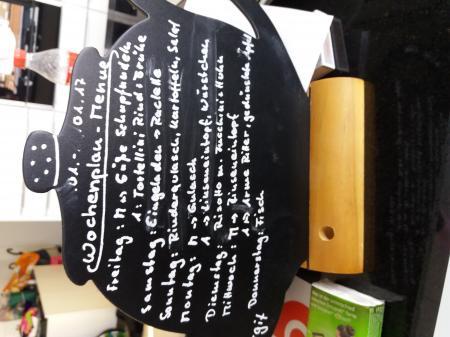 01.-...01.17
Wochenplan-Menue
Freitag: M → Süße Schupfnudeln
1: Tortellini Rind i Brühe
Samstag Eingeladen → Raclette
Sonntag: Rindergulasch, Kartoffeln, Salat
Montag: M → Gulasch
1 → Linseneintopf, Würstchen
Dienstag: Risotto m. Zucchini + Huhn
Mittwoch: M → Linseneintopf
1 → Arme Ritter, Äpfel
Donnerstag: Fisch